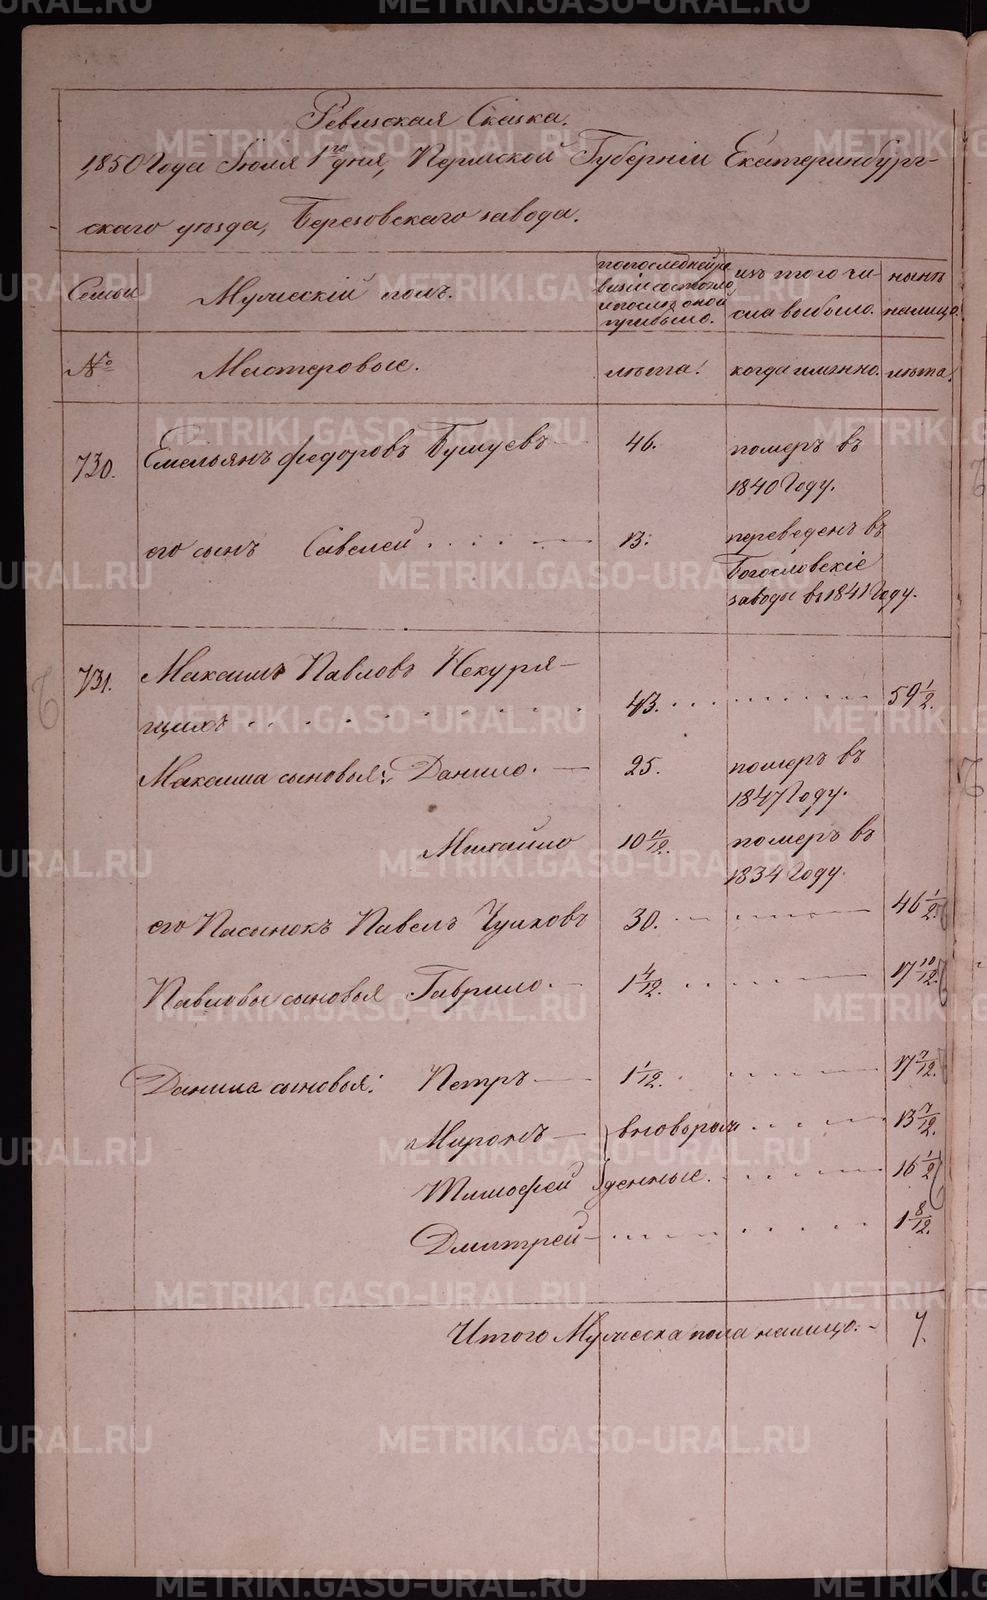 Ревизская Сказка.
1850 Года Июля 1го дня, Пермской Губернiи Екатеринбург-
скаго уезда, Березовскаго завода.
Семьи
Мужескiй полъ.
по последней ре
визiи состояло
и после оной
прибыло.
изъ того чи-
сла выбыло.
ныне
налицо.
№
Мастеровые.
лета.
когда именно.
лета.
730.
Емельянъ Федоровъ Бушуевъ
46.
померъ въ
1840 Году.
его сынъ Савелей
13.
переведенъ въ
Богословскiе
заводы въ 1841 Году.
731.
Максимъ Павловъ Некуря-
щихъ
43.
59 1/2.
Максима сыновья: Данило.
25.
померъ въ
1847 Году.
Михайло
10 11/12.
померъ въ
1834 Году.
его Пасынокъ Павелъ Чулковъ
30.
46 1/2.
Павловы сыновья Гаврило.
1 4/12.
17 10/12.
Данила сыновья: Петръ
1 1/12.
17 7/12.
Миронъ
вновьрож
13 7/12.
Тимофей
денные.
16 1/2
Дмитрей
1 8/12.
Итого Мужеска пола налицо.
7.
METRIKI.GASO-URAL.RU